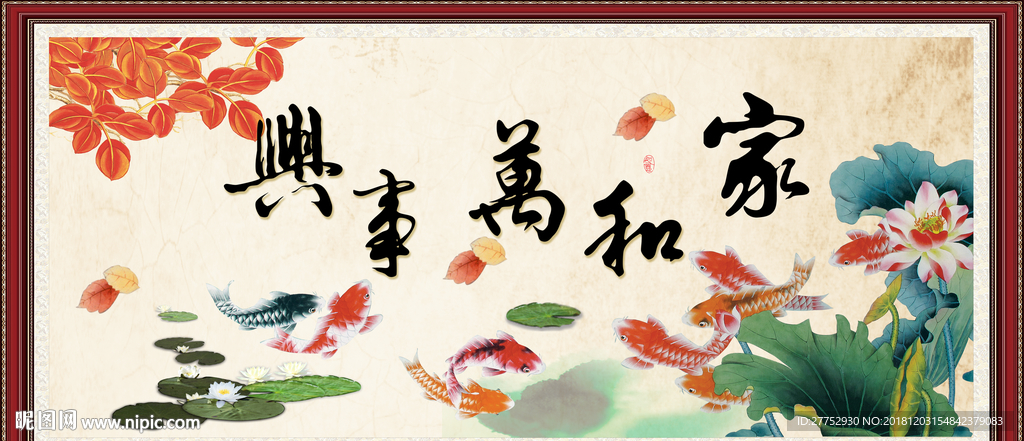 家和萬事興
昵图网 www.nipic.com
ID:27752930 NO:20181203154842379083